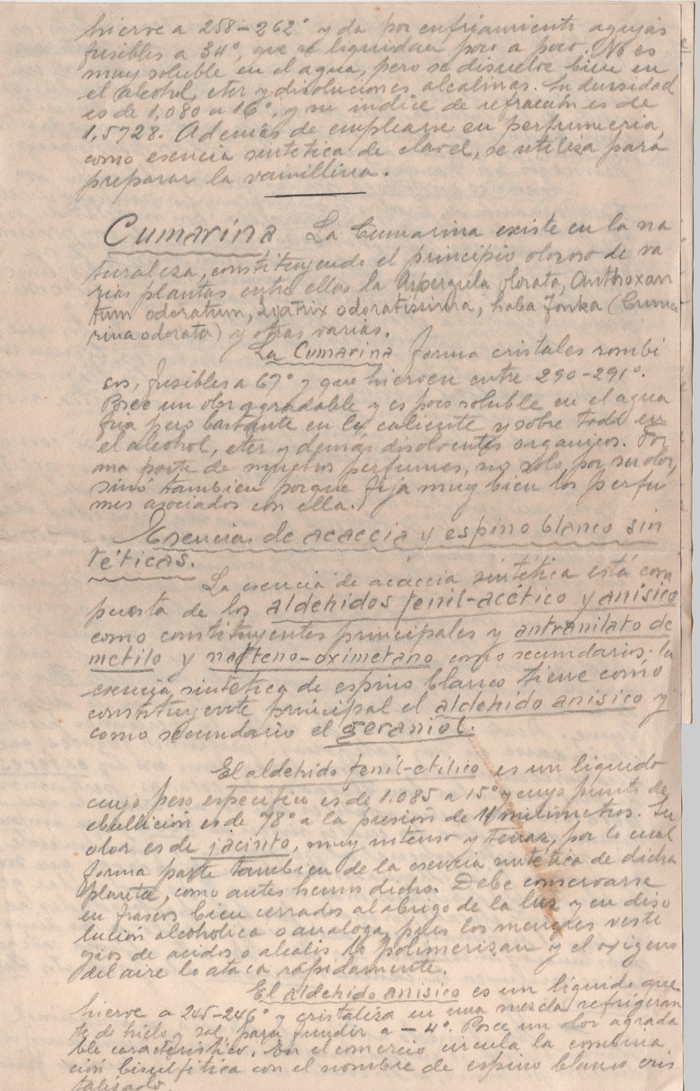 hierve a 258-262° y da por enfriamiento agujas
fusibles a 34°, que se liquidan poco a poco. No es
muy soluble en el agua, pero se disuelve bien en
el alcohol, eter y disoluciones alcalinas. Su densidad
es de 1,080 a 16° y su indice de refracción es de
1,5728. Además de emplearse en perfumeria,
como esencia sintetica de clavel, se utiliza para
preparar la vainillina.
Cumarina La Cumarina existe en la na
turaleza, constituyendo el principio oloroso de va
rias plantas entre ellas la Aspergula olorata, Anthoxan
tum odoratum, Liatrix odoratissima, haba Tonka (Cuma
rina odorata) y otras varias.
La Cumarina forma cristales rombi
cos, fusibles a 67° y que hierven entre 290-291°.
Posee un olor agradable y es poco soluble en el agua
fria pero bastante en la caliente y sobre todo en
el alcohol, eter y demás disolventes organicos. For
ma parte de muchos perfumes, no solo por su olor,
sinó tambien porque fija muy bien los perfu
mes asociados con ella.
Esencias de acaccia y espino blanco sin
téticas.
La esencia de acaccia sintética está com
puesta de los aldehidos fenil-acético y anísico
como constituyentes principales y antranilato de
metilo y nafteno-oximetano como secundarios; la
esencia sintetica de espino blanco tiene como
constituyente principal el aldehido anisico y
como secundario el geraniol.
El aldehido fenil-etilico es un liquido
cuyo peso especifico es de 1,085 a 15° y cuyo punto de
ebullición es de 78° a la presión de 11 milimetros. Su
olor es de jacinto, muy intenso y tenaz, por lo cual
forma parte tambien de la esencia sintetica de dicha
planta, como antes hemos dicho. Debe conservarse
en frascos bien cerrados al abrigo de la luz y en diso
lución alcoholica o analoga, pues los menores vesti
gios de acidos o alcalis la polimerizan y el oxigeno
del aire lo ataca rapidamente.
El aldehido anisico es un liquido que
hierve a 245-246° y cristaliza en una mezcla refrigeran
te de hielo y sal, para fundir a -4°. Posee un olor agrada
ble caracteristico. En el comercio circula la combina
ción bisulfitica con el nombre de espino blanco cris
talizado.